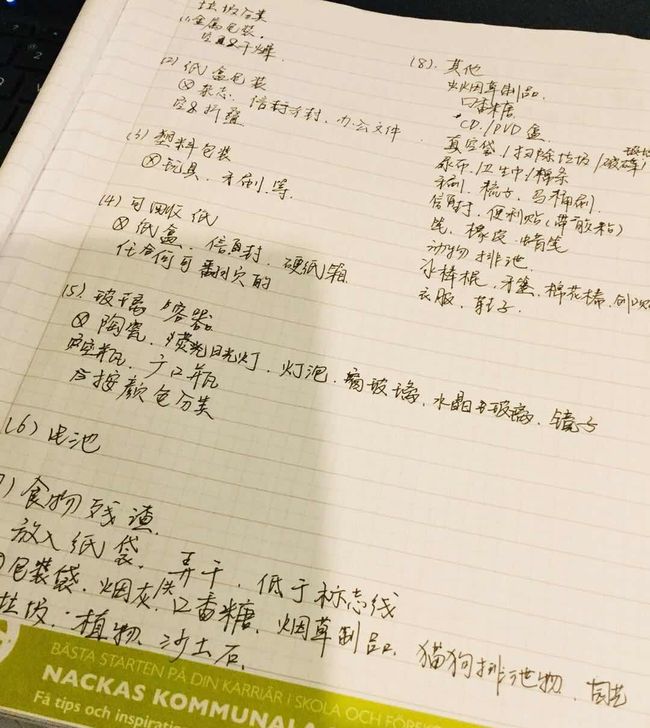 垃圾分类
(1) 金属包装.
应且要干燥.
(2) 纸盒包装
⊗ 杂志、信封、办公文件
应折叠
(3) 塑料包装
⊗ 玩具、牙刷等.
(4) 可回收纸
⊗ 纸盒、信封、硬纸箱
任何可
(5) 玻璃容器
⊗ 陶瓷、荧光日光灯、灯泡、窗玻璃、水晶玻璃、镜子
广口瓶
应按颜色分类
(6) 电池
7) 食物残渣.
放入纸袋、弄干、低于标志线
包装袋、烟灰、口香糖、烟草制品、猫狗排泄物、
垃圾、植物、沙土石.
(8). 其他
烟草制品.
口香糖.
CD./DVD 盒.
真空袋/扫除垃圾/破碎玻
尿布/卫生巾/棉条
牙刷、梳子、马桶刷.
信封、便利贴(带胶粘)
笔、橡皮、蜡笔
动物排泄.
冰棒棍、牙签、棉花棒、
衣服、鞋子.
BÄSTA STARTEN PÅ DIN KARRIÄR I SKOLA OCH FÖRSK
NACKAS KOMMUNALA
Få tips och inspiratio